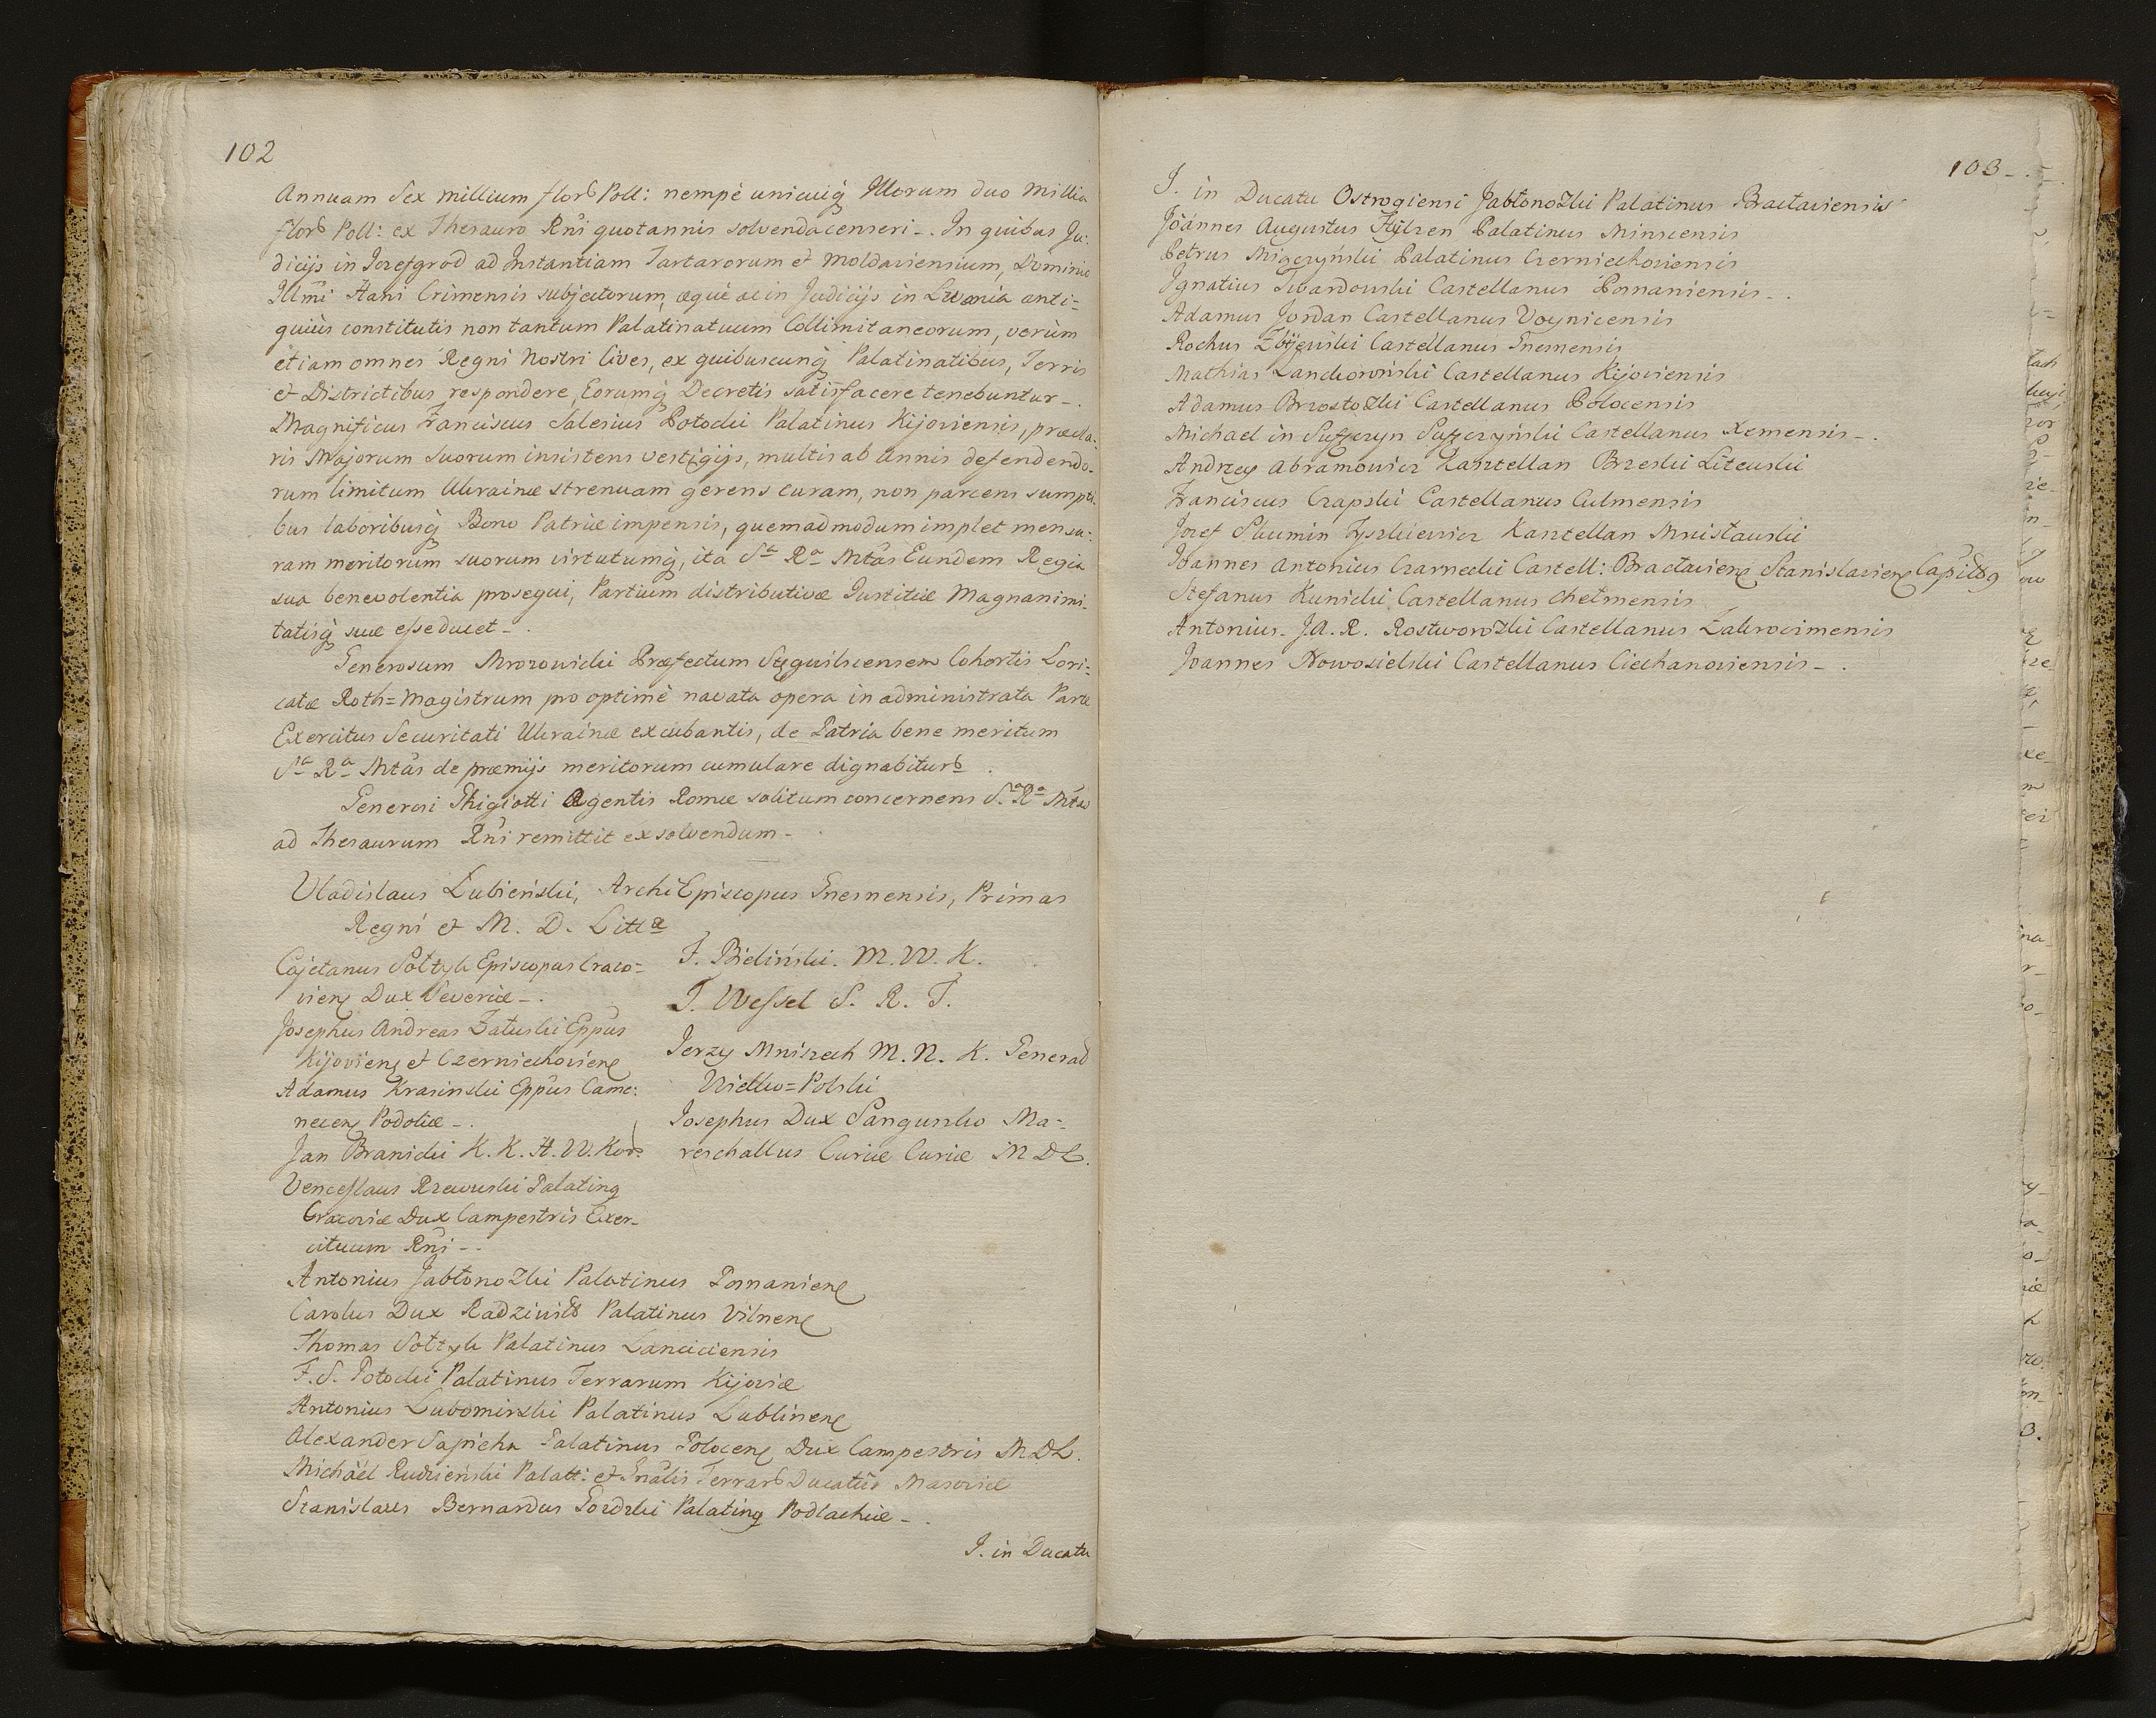 102
Annuam Sex millium flor Poll: nempè unicuiq Illorum duo millia
flor Poll: ex Thesauro Rni quotannis solvenda censeri_. In quibus Ju:
dicijs in Jozefgrod ad Instantiam Tartarorum et Moldaviensium, Domini
Illmi Hani Crimensis subjectorum, æquè ac in Judicijs in Lwania anti=
quiùs constitutis non tantum Palatinatuum Collimitaneorum, verùm
etiam omnes Regni Nostri Cives, ex quibuscunq Palatinatibus, Terris
et Districtibus respondere, Eorumq Decretis satisfacere tenebuntur_.
Magnificus Franciscus Salesius Potocki Palatinus Kijoviensis, præcla:
ris Majorum Suorum insistens vestigijs, multis ab annis defendendo:
rum limitum Ukrainæ strenuam gerens curam, non parcens sumpti:
bus laboribusq Bono Patriæ impensis, quemadmodum implet mensu:
ram meritorum suorum virtutumq, ita Sa Ra Mtas Eundem Regia
sua benevolentia prosequi, Partium distributivæ Justitiæ Magnanimi:
tatisq suæ esse ducet_.
Generosum Mrozowicki Præfectum Stegvilscensem Cohortis Lori:
catæ Roth=Magistrum pro optimè navata opera in administrata Parte
Exercitus Securitati Ukrainæ excubantis, de Patria bene meritum
Sa Ra Mtas de præmijs meritorum cumulare dignabitur.
Generosi Ghigiotti Agentis Romæ solitum concernens Sa Ra Mtas
ad Thesaurum Rni remittit exsolvendum_
Vladislaus Łubieński, Archi Episcopus Gnesnensis, Primas
Regni et M. D. Litt.æ
Cajetanus Sołtyk Episcopus Craco=
vien Dux Severiæ_.
Josephus Andreas Załuski Eppus
Kijovien et Czerniechovien
Adamus Krasinski Eppus Came:
necen Podoliæ_.
Jan Branicki K. K. H. W. Kor.
Venceslaus Rzewuski Palatinq
Cracoviæ Dux Campestris Exer_
cituum Rni_.
F. Bieliński. M. W. K.
T. Wessel S. R. T.
Jerzy Mniszech M. N. K. Generał
Wielko=Polski
Josephus Dux Sanguszko Ma=
reschallus Curiæ Curiæ MDL.
Antonius Jabłonozki Palatinus Posnanien
Carolus Dux Radziwiłł Palatinus Vilnen
Thomas Sołtyk Palatinus Lanciciensis
F. S. Potocki Palatinus Terrarum Kijoviæ
Antonius Lubomirski Palatinus Lublinen
Alexander Sapieha Palatinus Polocen Dux Campestris MDL.
Michaël Rudzieński Palatt: et Gnalis Terrar Ducatus Masoviæ
Stanislaus Bernardus Gozdzki Palatinq Podlachiæ_.
J. in Ducatu
103_.
J. in Ducatu Ostrogiensi Jabłonozki Palatinus Braclaviensis
Joannes Augustus Hÿlzen Palatinus Minscensis
Petrus Miączyński Palatinus Czerniechoviensis
Ignatius Twardowski Castellanus Posnaniensis_.
Adamus Jordan Castellanus Voynicensis
Rochus Zbijewski Castellanus Gnesnensis
Mathias Lanckorwński Castellanus Kijoviensis
Adamus Brzostozki Castellanus Polocensis
Michael in Suffczyn Suffczyński Castellanus Xernensis_.
Andrzey Abramowicz Kasztellan Brzeski Litewski
Franciscus Czapski Castellanus Culmensis
Jozef Skumin Tyszkiewicz Kasztellan Mscisławski
Joannes Antonius Czarnecki Castell: Braclavien Stanislavien Capit
Stefanus Kunicki Castellanus Chełmensis
Antonius. J. A. R. Rostworozki Castellanus Zakrocimensis
Joannes Nowosielski Castellanus Ciechanoviensis_.